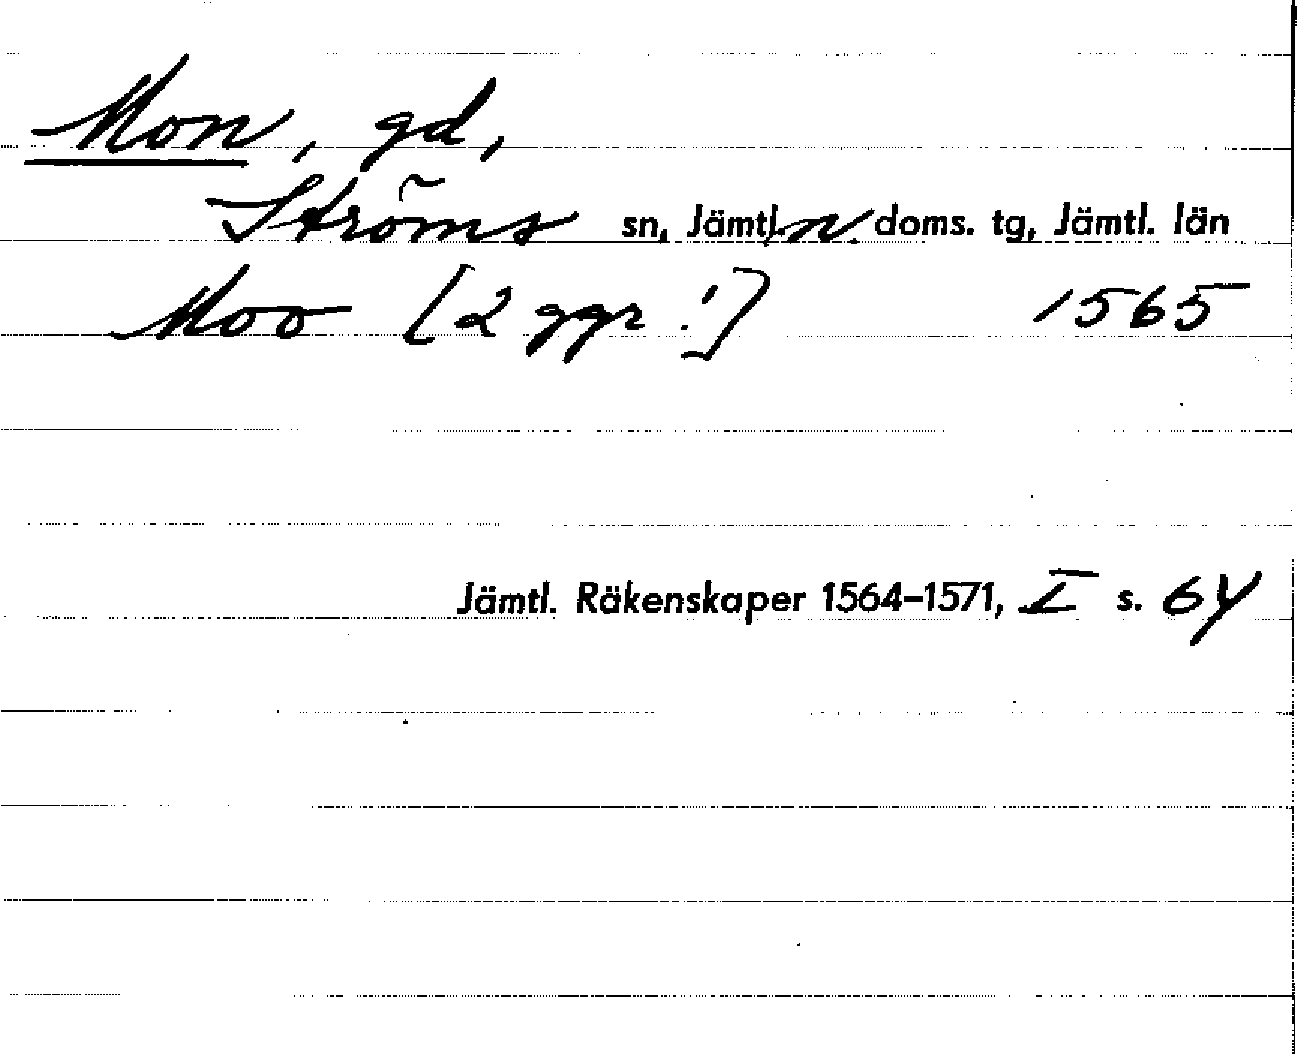 Mon, gd,
Ströms sn, Jämtl. n. doms. tg, Jämtl. län
Moo [2 ggr!] 1565
Jämtl. Räkenskaper 1564–1571, I s. 64